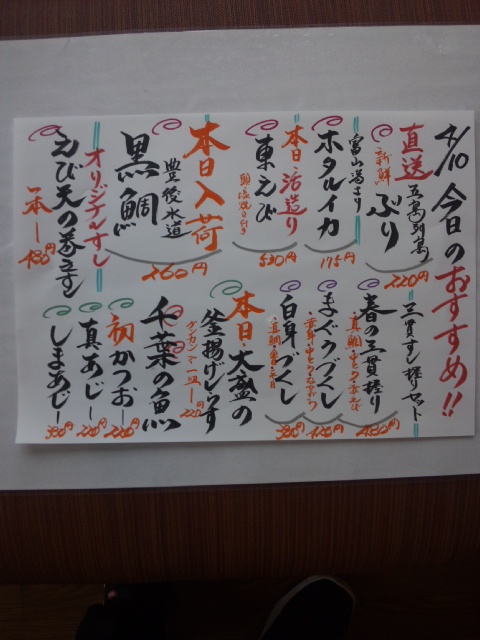 4/10 今日のおすすめ!!
直送 五島列島
新鮮 ぶり
220円
富山湾より
ホタルイカ
175円
本日・活造り
車えび
頭塩焼き付き
530円
本日入荷
豊後水道
黒鯛
260円
オリジナルすし
えび天の巻きずし
一本ー
480円
三貫すし握りセット
春の三貫握り
まぐろづくし
420円
白身づくし
380円
本日・大盛の
釜揚げしらす
グンカンで一皿ー
220円
千葉の魚
初かつおー
220円
真あじー
220円
しまあじー
380円